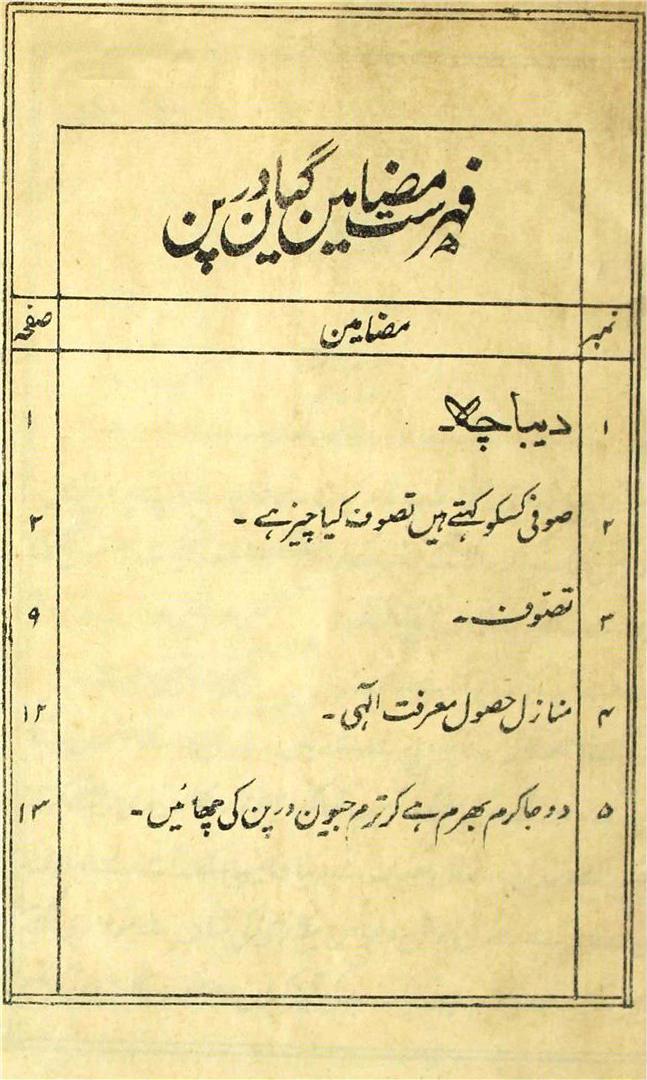 فہرست مضامین گیان درپن
نمبر مضامین صفحہ
۱ دیباچہ۔ ۱
۲ صوفی کسکو کہتے ہیں تصوف کیا چیز ہے۔ ۲
۳ تصوّف۔ ۹
۴ منازل حصول معرفت الٰہی۔ ۱۲
۵ دوجا کرم بھرم ہے کر ترم جیون درپن کی چھائیں۔ ۱۳